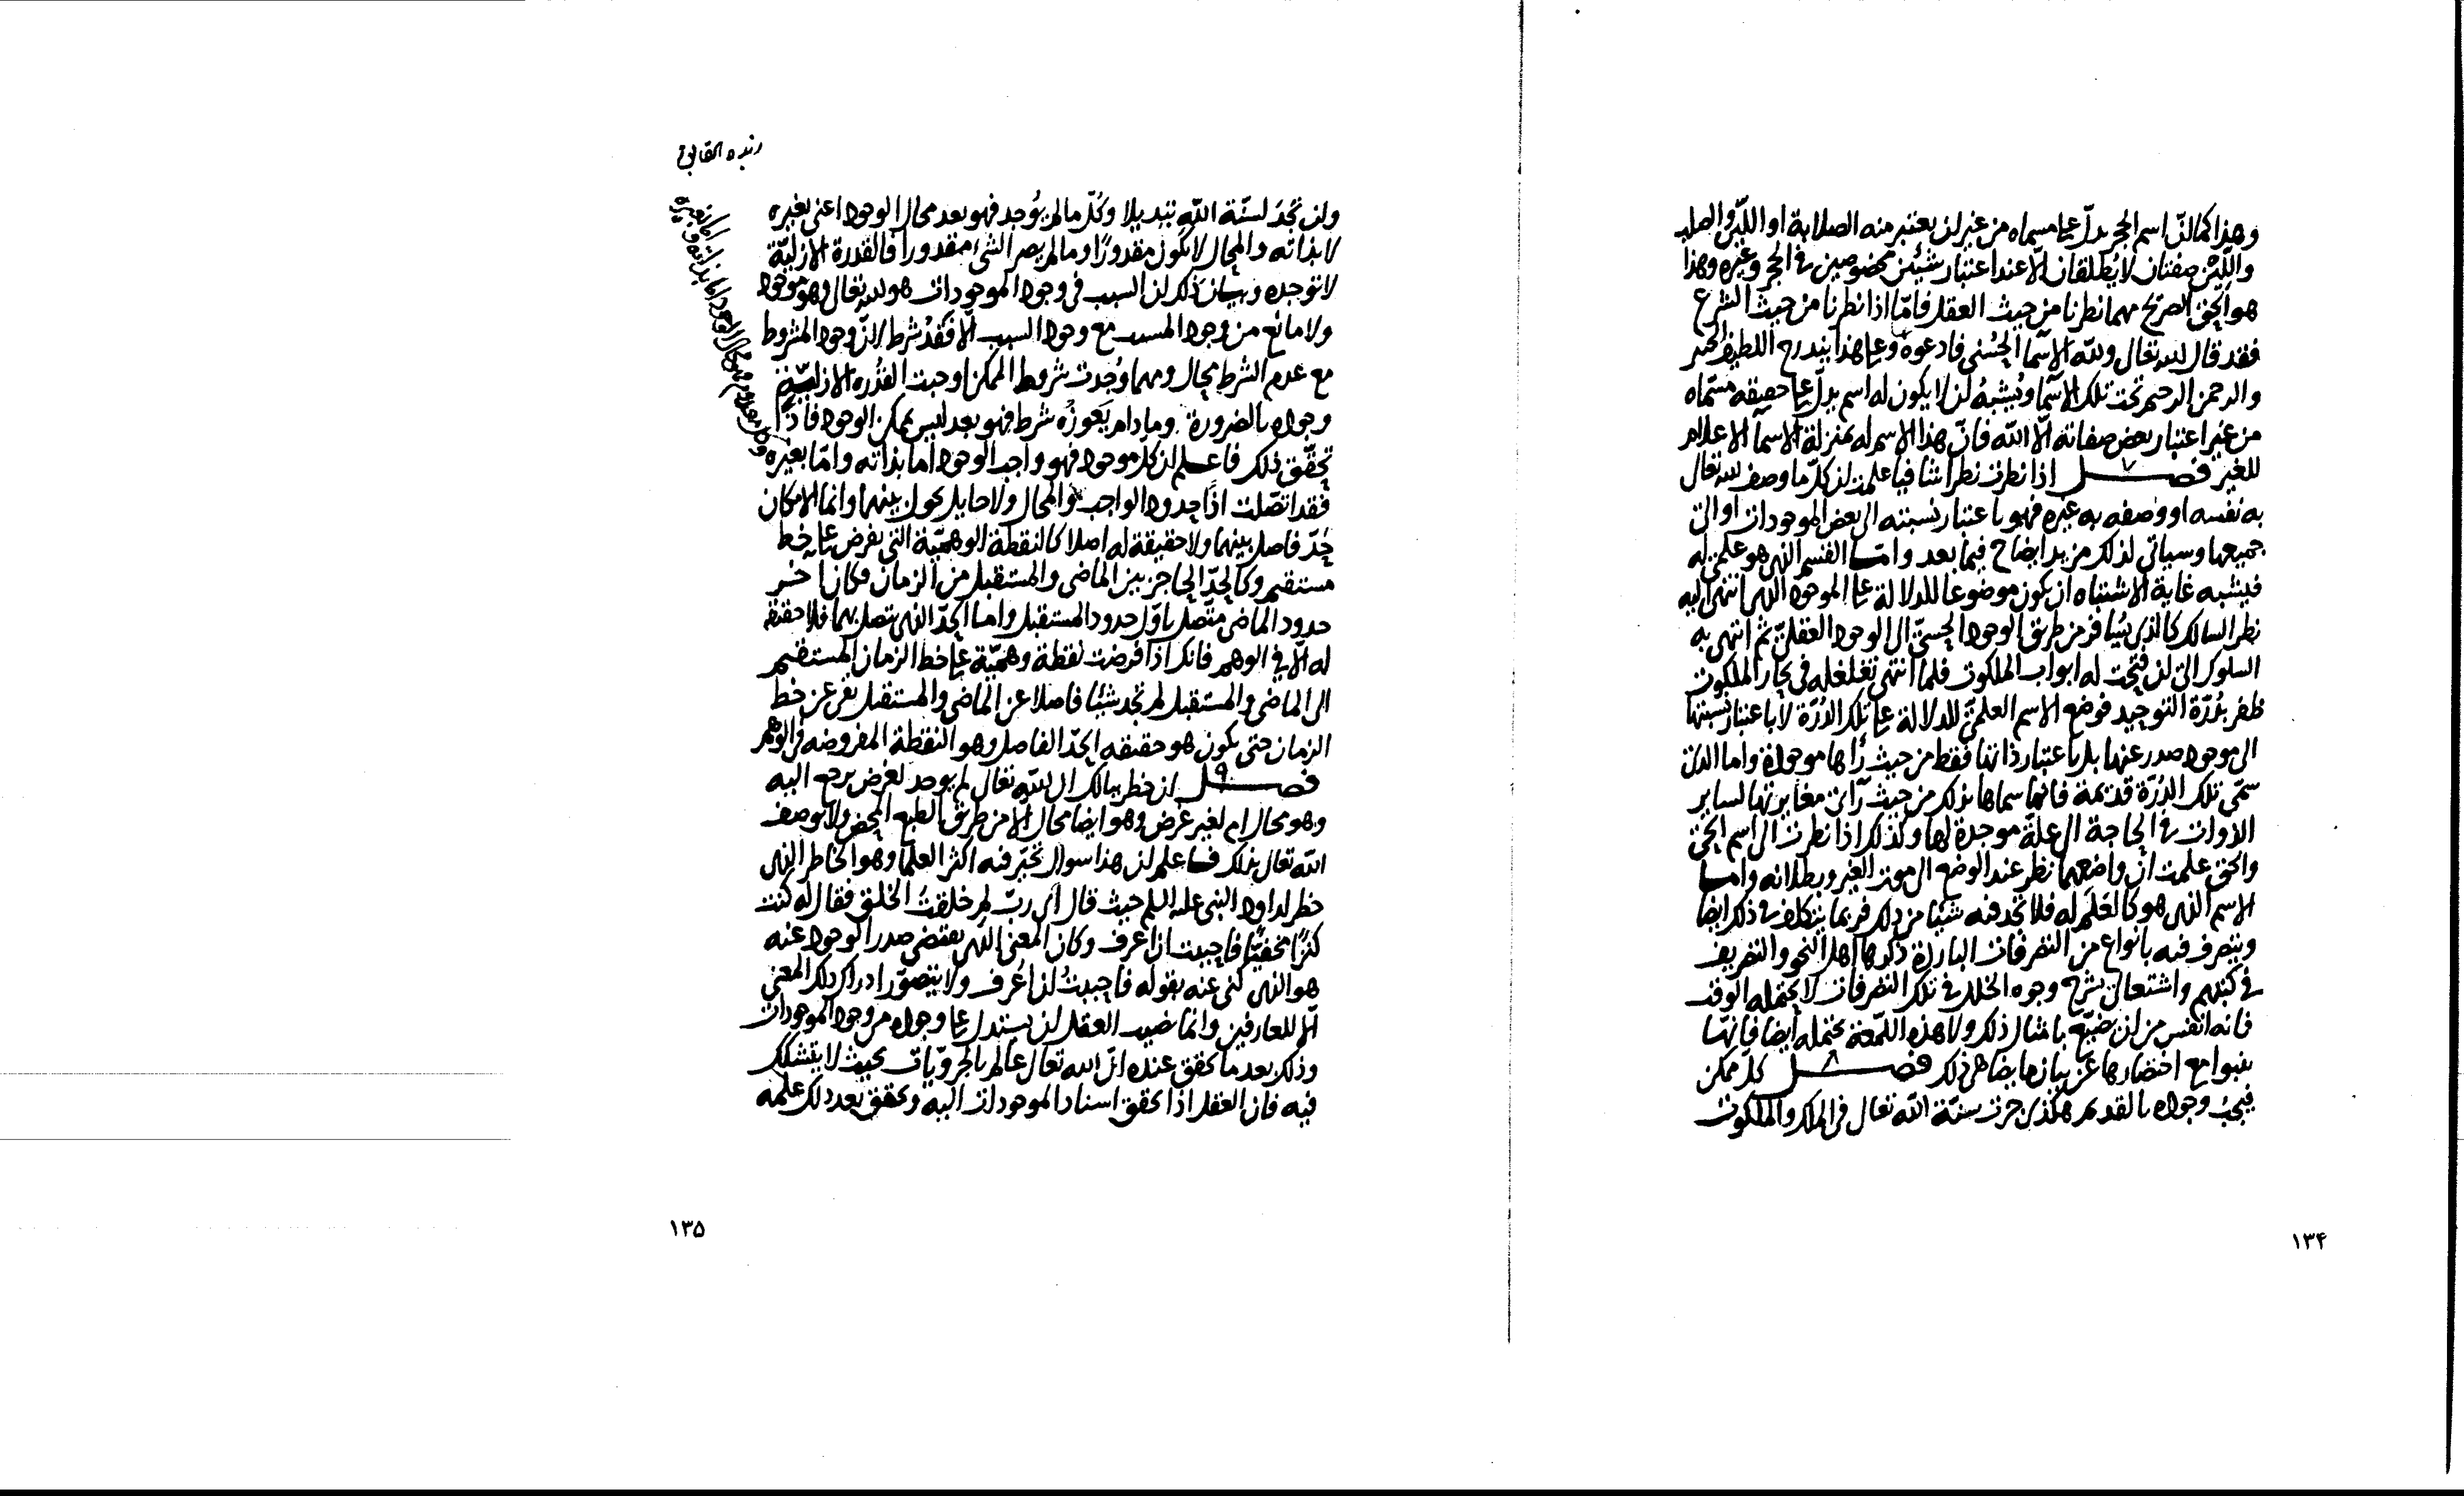 وهذا كما ان اسم الحجر يدل على مسماه من غير ان يعتبر منه الصلابة او اللين والصلب
واللين صفتان لا يطلقان الا عند اعتبار شيئين مخصوصين في الحجر وغيره وهذا
هو الحق الصريح مهما نظرنا من حيث العقل فامّا اذا نظرنا من حيث الشرع
فقد قال الله تعالى ولله الاسما الحسنى فادعوه وعلى هذا يندرج اللطيف الخبير
والرحمن الرحيم تحت تلك الاسما ويشبه ان لا يكون له اسم يدلّ على حقيقة مسمّاه
من غير اعتبار بعض صفاته الا الله فانّ هذا الاسم له بمنزلة الاسما الاعلام
للغير فصل ٧ اذا نظرت نظرا شافيا علمت ان كلّ ما وصف الله تعالى
به نفسه او وصفه به غيره فهو باعتبار نسبته الى بعض الموجودات او الى
جميعها وسياتي لذلك مزيد ايضاح فيما بعد وامّا القسم الذي هو علمى له
فيشبه غاية الاشتباه ان يكون موضوعا للدلالة على الموجود الذي انتهى اليه
نظر السالك كالذي يسافر من طريق الوجود الحسىّ الى الوجود العقلىّ ثم انتهى به
السلوك الى ان فتحت له ابواب الملكوت فلما انتهى تغلغله في بحار الملكوت
ظفر بدُرّة التوحيد فوضع الاسم العلمىّ للدلالة على تلك الدرّة لا باعتبار نسبتها
الى موجود صدر عنها بل باعتبار ذاتها فقط من حيث رآها موجودة واما الذي
سمّى تلك الدُرّة قديمة فانما سماها بذلك من حيث رآى مغايرتها لساير
الذوات في الحاجة الى علة موجدة لها وكذلك اذا نظرت الى اسم الحق
والحق علمت ان واضعهما نظر عند الوضع الى موت الغير وبطلانه وامّا
الاسم الذي هو كالعلم له فلا تجد فيه شيئا من ذلك فربما يتكلف في ذلك ايضا
ويتصرف فيه بانواع من التصرفات الباردة ذكرها اهل النحو والتصريف
في كتبهم واشتغالى بشرح وجوه الخلل في تلك التصرفات لا يحتمله الوقت
فانه انفس من ان يضيّع بامثال ذلك ولا هذه اللمعة تحتمله ايضا فانّها
ينبوا مع اختصارها عن بيان ما يضاهى ذلك فصل ٨ كل ممكن
فيجب وجوده بالقديم هكذى جرت سنّة الله تعالى في الملك والملكوت
١٣۴
زبده الحقائق
ولن تجد لسنّة الله تبديلا وكلّ ما لم يوجد فهو بعد محال الوجود اعنى بغيره
لا بذاته والمحال لا يكون مقدورًا وما لم يصر الشئ مقدورا فالقدرة الازليّة
لا توجده وبيان ذلك ان السبب في وجود الموجودات هو الله تعالى وهو موجود
ولا مانع من وجود المسبب مع وجود السبب الّا فَقْدُ شرط لانّ وجود المشروط
مع عدم الشرط محال ومهما وُجدت شروط الممكن اوجبت القدره الازليّة
وجوده بالضرورة وما دام يَعوزُه شرط فهو بعد ليس بممكن الوجود فاذا
تحقّق ذلك فاعلم ان كل موجود فهو واجب الوجود اما بذاته وامّا بغيره
وكل معدوم فهو محال الوجود اما بذاته واما بغيره
فقد اتصلت اذًا حدود الواجب والمحال ولا حايل يحول بينهما وانما الامكان
حدّ فاصل بينهما ولا حقيقة له اصلا كالنقطة الوهميّة التى تفرض على خط
مستقيم وكالحدّ الحاجز بين الماضى والمستقبل من الزمان فكان اخر
حدود الماضى متّصل باوّل حدود المستقبل واما الحدّ الذي يتصل بهما فلا حقيقة
له الّا في الوهم فانك اذا فرضت نقطة وهميّة على خط الزمان المستقيم
الى الماضى والمستقبل لم تجد شيئا فاصلا عن الماضى والمستقبل تعرى عن خط
الزمان حتى يكون هو حقيقة الحدّ الفاصل وهو النقطة المفروضه في الوهم
فصل ٩ ان خطر ببالك ان الله تعالى لم يوجد لغرض يرجع اليه
وهو محال ام لغير غرض وهو ايضا محال الا من طريق الطبع المحض ولا يوصف
الله تعالى بذلك فاعلم ان هذا سوال تحيّر فيه اكثر العلما وهو الخاطر الذي
خطر لداود النبى عليه السلم حيث قال اى ربّ لم خلقت الخلق فقال له كنت
كنزًا مخفيّا فاحببت ان اعرف وكان المعنى الذي يقتضى صدر الوجود عنه
هو الذي كنى عنه بقوله فاحببتُ ان اُعرف ولا يتصوّر ادراك ذلك المعنى
الّا للعارفين وانما نصيب العقل ان يستدل على وجوده من وجود الموجودات
وذلك بعد ما تحقق عنده انّ الله تعالى عالم بالجزويّات بحيث لا يتشكك
فيه فان العقل اذا تحقق اسناد الموجودات اليه وتحقق بعد ذلك علمه
١٣۵